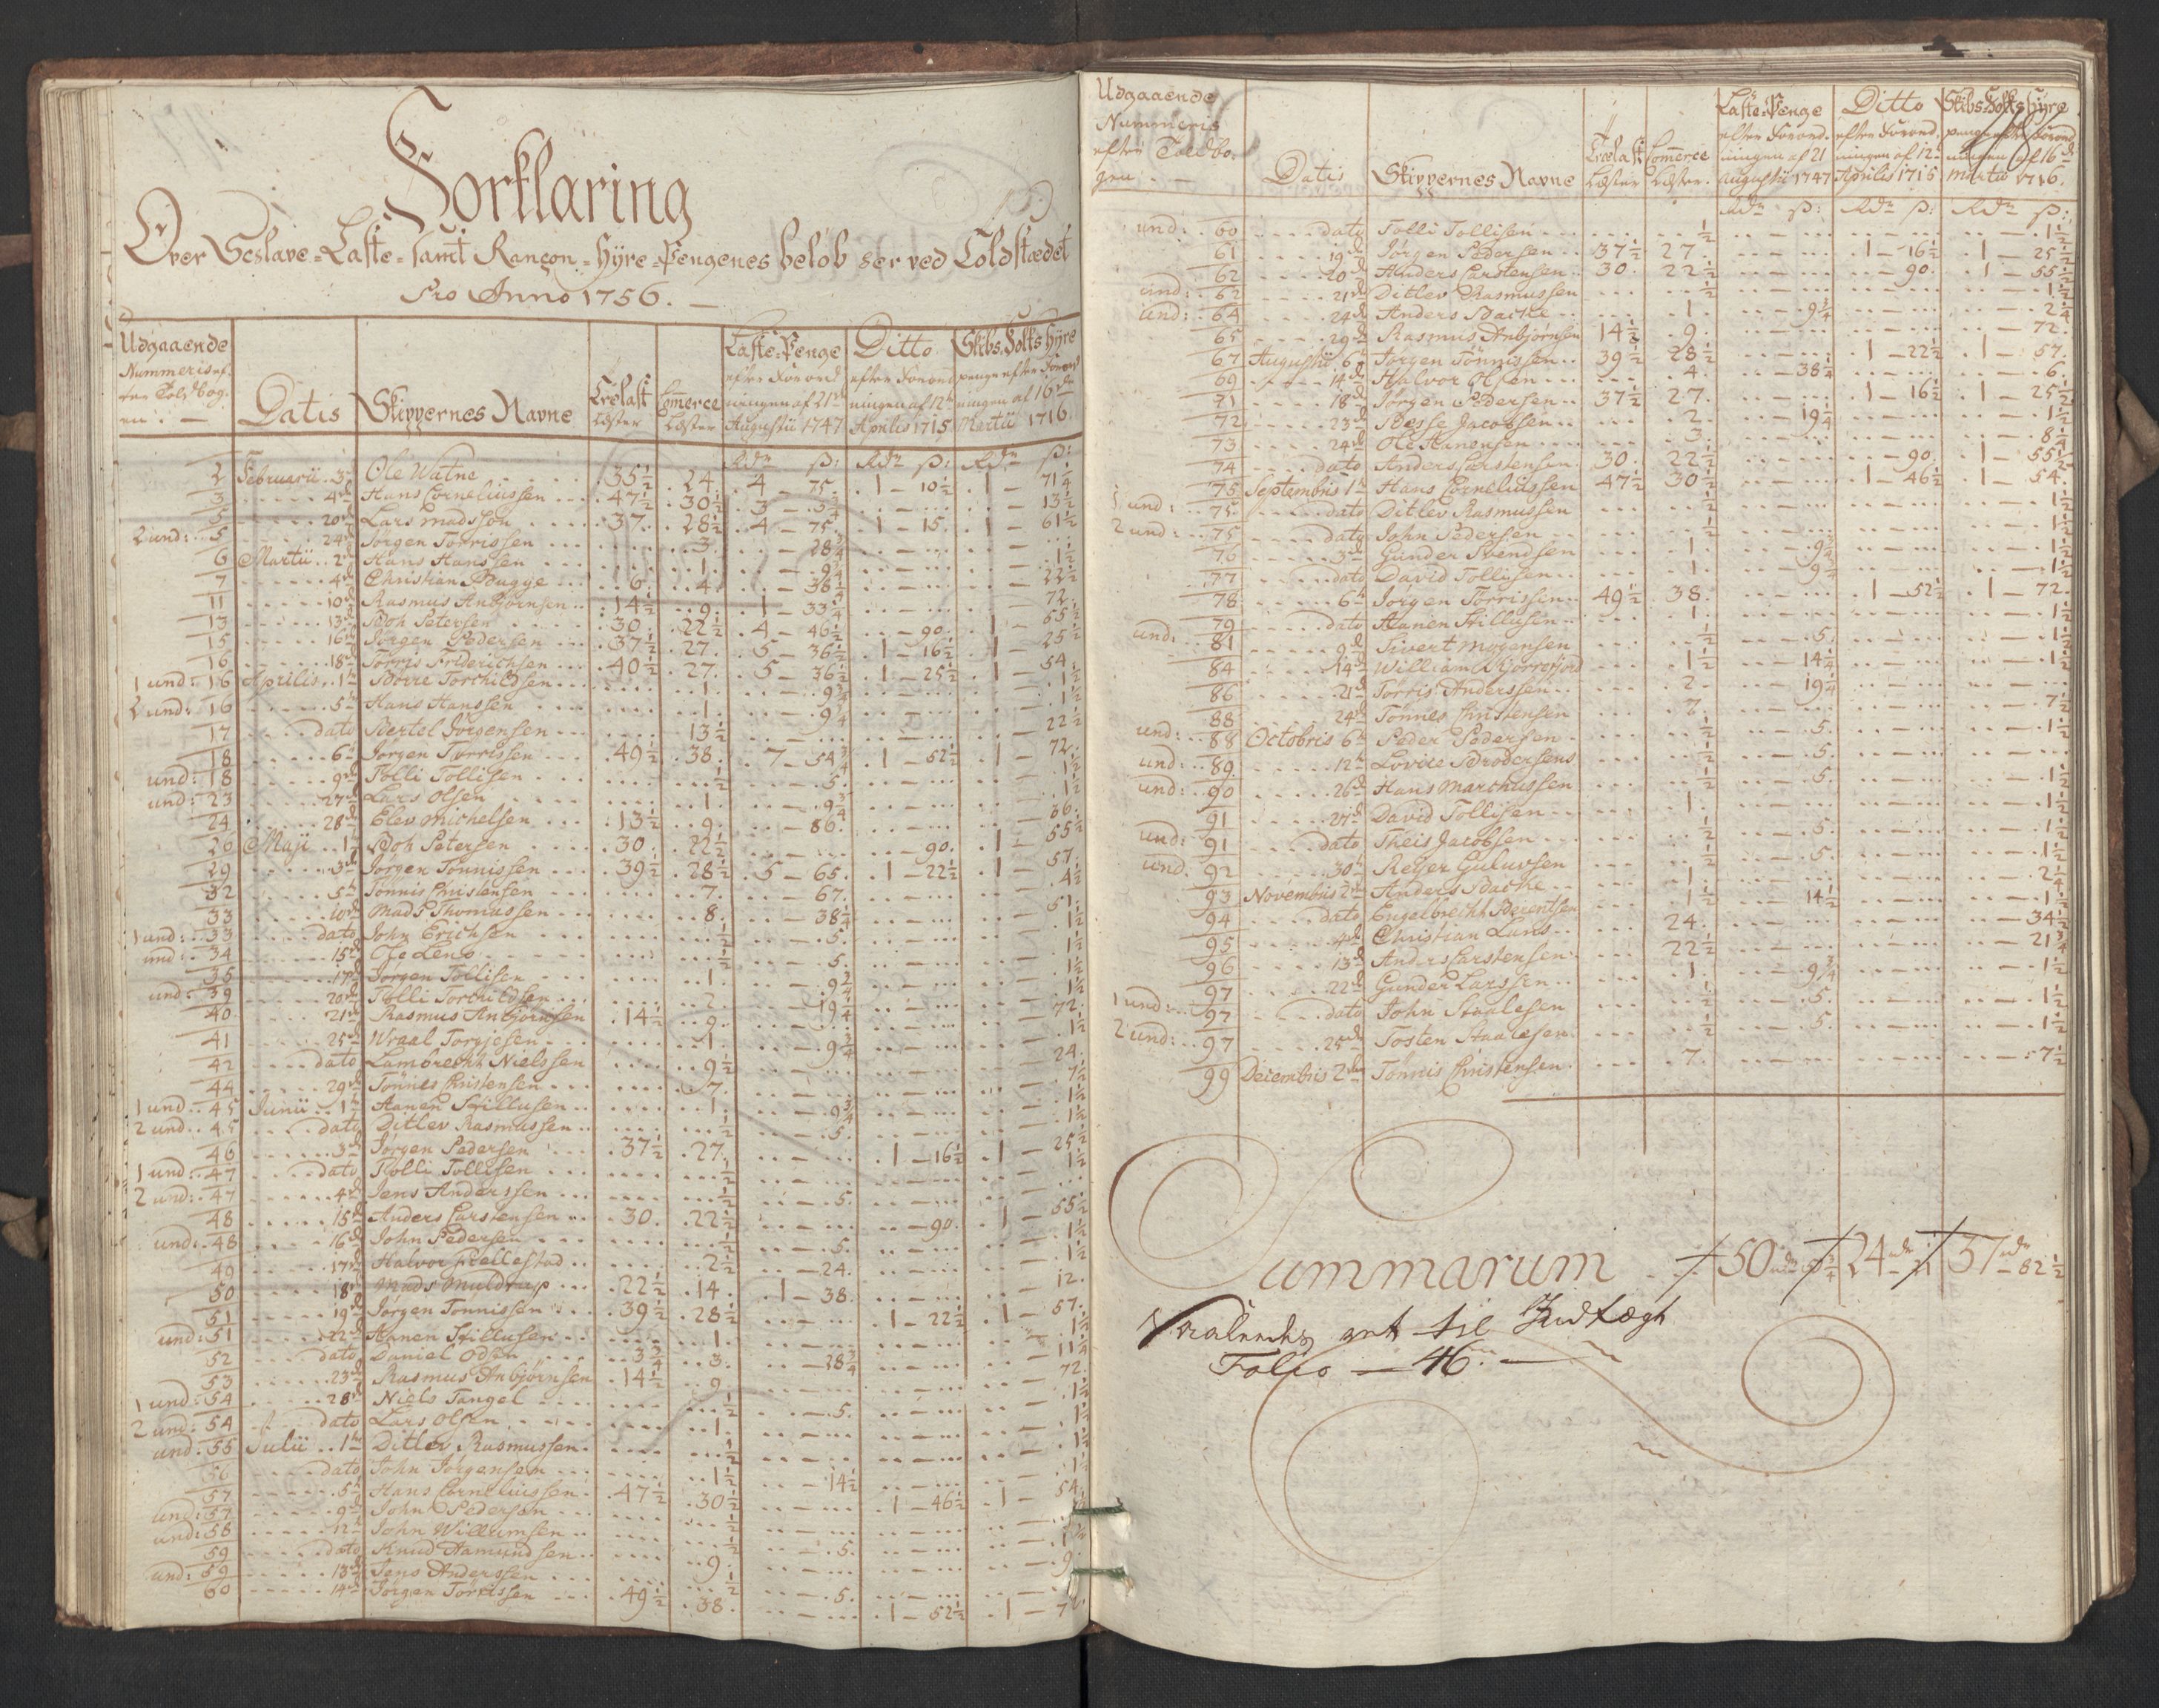 Forklaring
Over Seslave-Laste-samt Rançon-Hÿre-Pengenes beløb her ved Toldstædet
Pro Anno 1756.
Udgaaende Nummeris ef-ter Toldbog-en: | Datis | Skippernes Navne | Trælast Læster | Comerce Læster | Laste-Penge efter Forord-ningen af 21de Augustii 1747 | Ditto efter Forord-ningen af 12te Aprilis 1715 | Skibs-Folks Hÿre penge efter Forord-ningen af 16de Martii 1716
Rdr ß: | Rdr ß: | Rdr ß:
2 Februarii 3de Ole Watne 35½ 24. 4 - 75. 1 - 10½ 1 - 71¼
3 4de Hans Corneliussen 47½ 30½ 3 - 3¾ 13½
5 20de Lars Madssøn 37. 28½ 4 - 75. 1 - 15. 1 - 61½
2 und: 5 24de Jørgen Torrissen 3. 28¾
6 Martii 2den Hans Hanssen 1. 9¾ 1½
7 4de Christian Bugge 6. 4. 38¼ 22½
11 10de Rasmus Anbjørnsen 14½ 9. 1 - 33¾ 72.
13 13de Boh Petersen 30. 22½ 4 - 46½ 90. 1 - 55½
15 16de Jørgen Pedersen 37½ 27. 5 - 36½ 1 - 16½ 1 - 25½
16 18de Torris Friderichsen 40½ 27. 5 - 36½ 1 - 25½ 1 - 54.
1 und: 16 Aprilis 1te Børre Torchildsen 1. 9¾ 1½
2 und: 16 5te Hans Hanssen 1. 9¾ 1½
17 dato Bertel Jørgensen 13½ 22½
18 6te Jørgen Torrissen 49½ 38. 7 - 54¾ 1 - 52½ 1 - 72.
und: 18 9de Tolli Tollisen ½ 5. 1½
und: 23 27de Lars Olsen 1. 9¾ 1½
24 28de Elev Michelsen 13½ 9. 86. 36.
26 Maji 1te Boh Petersen 30. 22½ 90. 1 - 55½
29 3de Jørgen Tønnissen 39½ 28½ 5 - 65. 1 - 22½ 1 - 57.
32 5te Tønnis Christensen 7. 67. 4½
33 10de Mads Thomassen 8. 38¼ 51.
1 und: 33 dato John Erichsen ½ 5. 1½
und: 34 15de Ole Leno ½ 5. 1½
35 17de Jørgen Tollisen 1. 9¾ 1½
und: 39 20de Tolli Torchildsen 2. 19¼ 1½
40 21de Rasmus Anbjørnsen 14½ 9. 72.
41 25de Wraal Torgjesen 1. 9¾ 1½
42 dato Lambrecht Nielssen 9½ 24.
44 29de Tønnes Christensen 7. 7½
1 und: 45 Junii 1te Aanen Stillufsen 1. 9¾ 1½
2 und: 45 dato Ditlev Rasmussen ½ 5. 1½
46 3de Jørgen Pedersen 37½ 27. 1 - 16½ 1 - 25½
1 und: 47 dato Tolli Tollisen ½ 1½
2 und: 47 4de Jens Anderssen ½ 5.
48 15de Anders Carstensen 30. 22½ 90. 1 - 55½
und: 48 16de John Pedersen ½ 5. 1½
49 17de Halvor Tellestad 2½ 24. 1½
50 18de Mads Muldrup 22½ 14. 1 - 38. 12.
51 19de Jørgen Tønnissen 39½ 28½ 1 - 22½ 1 - 57.
und: 51 22de Aanen Stillufsen 1. 1½
52 dato Daniel Odsen 3¾ 3. 28¾ 11¼
53 23de Rasmus Anbjørnsen 14½ 9. 72.
1 und: 54 28de Niels Tangel ½ 5. 1½
2 und: 54 dato Lars Olsen 1. 1½
und: 55 Julii 1te Ditlev Rasmussen ½ 1½
56 dato John Jørgensen 1½ 14½ 1½
57 5te Hans Corneliussen 47½ 30½ 1 - 46½ 1 - 54.
und: 57 9de John Pedersen ½
und: 58 12te John Willumsen ½ 5.
59 dato Knud Aamundsen 9. 9.
und: 59 13de Jens Anderssen ½ 5.
60 14de Jørgen Torrissen 49½ 38. 1 - 52½ 1 - 72.
Udgaaende Nummeris efter Toldbo-gen | Datis | Skippernes Navne | Trælast Læster | Comerce Læster | Laste-Penge efter Forord-ningen af 21 Augustii 1747 | Ditto efter Forord-ningen af 12te Aprilis 1715 | Skibs-Folks Hÿre penge efter Forord-ningen af 16de Martii 1716.
Rdr ß: | Rdr ß: | Rdr ß:
und: 60 dato Tolli Tollisen ½ 1½
61 19de Jørgen Pedersen 37½ 27. 1 - 16½ 1 - 25½
62 20de Anders Carstensen 30. 22½ 90. 1 - 55½
und: 62 21de Ditlev Rasmussen ½ 1½
und: 64 24de Anders Bache 1. 9¾ 2¼
65 29de Rasmus Anbjørnsen 14½ 9. 72.
67 Augustii 6te Jørgen Tønnissen 39½ 28½ 1 - 22½ 1 - 57.
69 14de Halvor Olsen 4. 38¼ 6.
71 18de Jørgen Pedersen 37½ 27. 1 - 16½ 1 - 25½
72 23de Besse Jacobsen 2. 19¼ 1½
73 24de Ole Aanensen 3. 8¼
74 dato Anders Carstensen 30. 22½ 90. 1 - 55½
75 Septembris 1te Hans Corneliussen 47½ 30½ 1 - 46½ 1 - 54.
1 und: 75 dato Ditlev Rasmussen ½ 1½
2 und: 75 dato John Pedersen ½ 1½
76 3de Gunder Svendsen 1. 9¾ 1½
77 dato David Tollisen 1. 9¾ 1½
78 6te Jørgen Torrissen 49½ 38. 1 - 52½ 1 - 72.
79 dato Aanen Stillufsen 1. 1½
und: 81 9de Sivert Mogensen ½ 5. 1½
84 14de William Skjørresfiord 1½ 14¼ 1½
86 21de Torris Anderssen 2. 19¼
88 24de Tønnes Christensen 7. 7½
und: 88 Octobris 6te Peder Pedersen ½ 5. 1½
und: 89 12te Lovise Brodersens ½ 5.
und: 90 26de Hans Marchussen ½ 5. 1½
91 27de David Tollisen 1. 1½
und: 91 dato Theis Jacobsen ½ 5. 1½
und: 92 30te Reijer Guluvsen ½ 5. 1½
93 Novembris 2den Anders Bache 1. 2¼
94 dato Engelbrecht Berentsen 1½ 14½ 1½
95 4de Christian Lans 24. 34½
96 13de Anders Carstensen 22½ 21¾
97 22de Gunder Larssen 1. 9¾ 1½
1 und: 97 dato John Staalesen ½ 5. 1½
2 und: 97 25de Tosten Staalesen ½ 5. 1½
99 Decembris 2den Tønnis Christensen 7. 7½
Summarum 50 rdr 24 rdr 37 rdr 82½
Folio - 46.